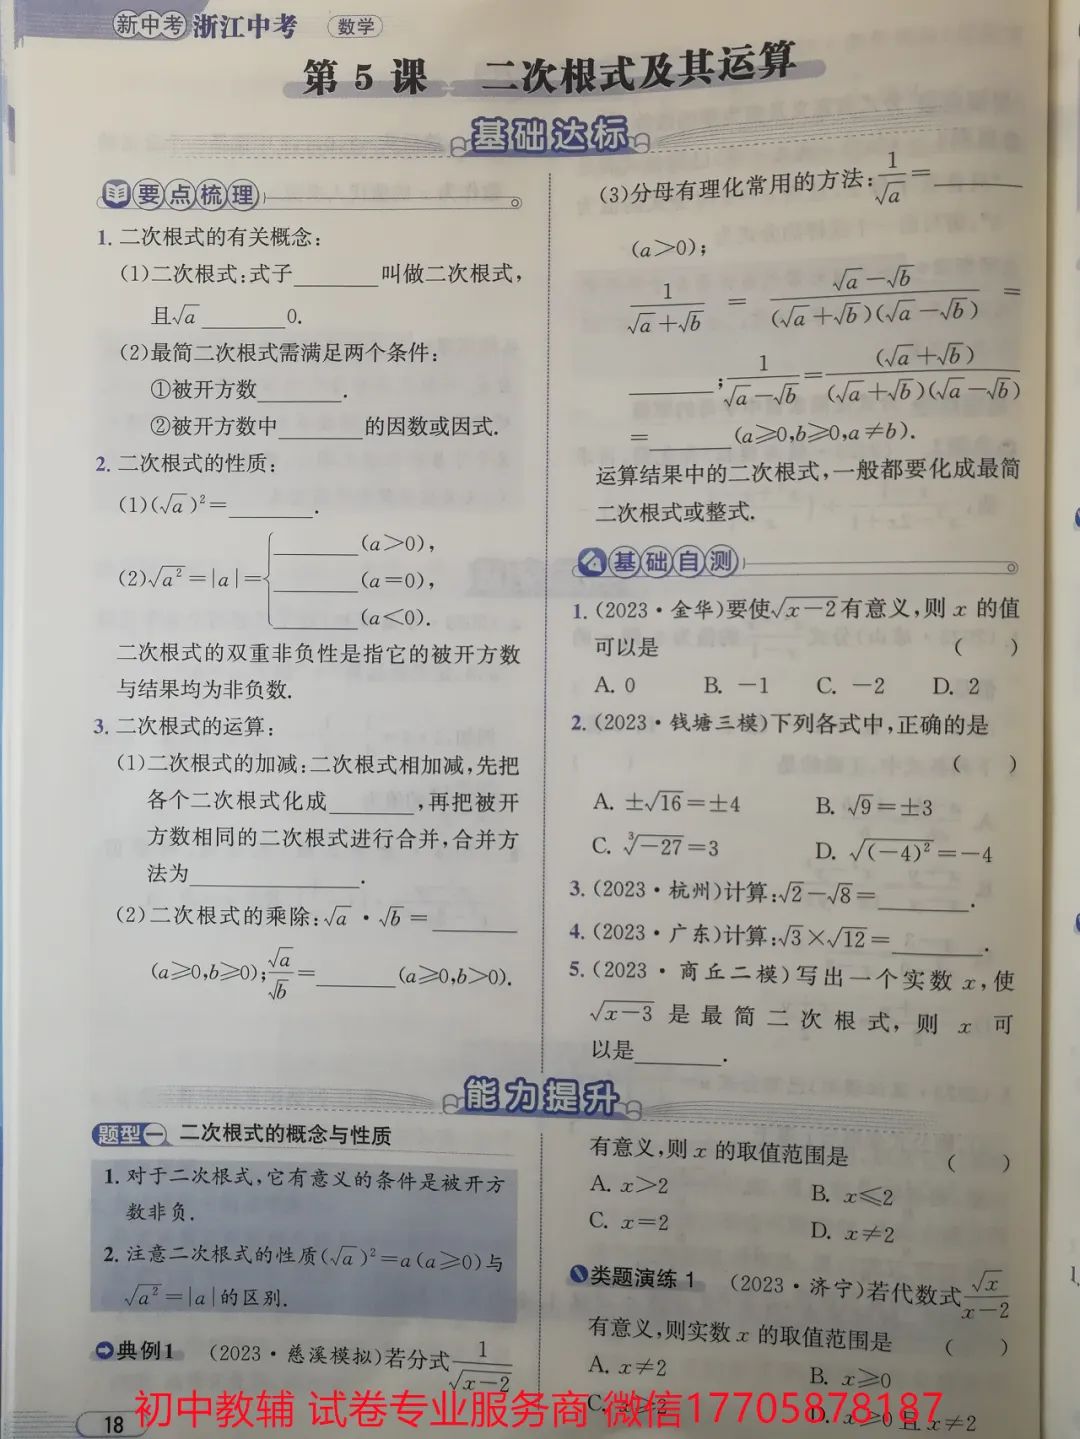 新中考 浙江中考 数学
第 5 课 二次根式及其运算
基础达标
要点梳理
1. 二次根式的有关概念:
(1)二次根式:式子________叫做二次根式,
且√a________0.
(2)最简二次根式需满足两个条件:
①被开方数________.
②被开方数中________的因数或因式.
2. 二次根式的性质:
(1)(√a)²=________.
(2)√a²=|a|={________(a>0),
________(a=0),
________(a<0).
二次根式的双重非负性是指它的被开方数
与结果均为非负数.
3. 二次根式的运算:
(1)二次根式的加减:二次根式相加减,先把
各个二次根式化成________,再把被开
方数相同的二次根式进行合并,合并方
法为________________.
(2)二次根式的乘除:√a·√b=________
(a≥0,b≥0);√a/√b=________(a≥0,b>0).
(3)分母有理化常用的方法:1/√a=________
(a>0);
1/(√a+√b) = (√a-√b)/((√a+√b)(√a-√b)) =
________;1/(√a-√b)=(√a+√b)/((√a+√b)(√a-√b))
=________(a≥0,b≥0,a≠b).
运算结果中的二次根式,一般都要化成最简
二次根式或整式.
基础自测
1. (2023·金华)要使√(x-2)有意义,则 x 的值
可以是 ( )
A. 0 B. -1 C. -2 D. 2
2. (2023·钱塘三模)下列各式中,正确的是
( )
A. ±√16=±4 B. √9=±3
C. ³√-27=3 D. √(-4)²=-4
3. (2023·杭州)计算:√2-√8=________.
4. (2023·广东)计算:√3×√12=________.
5. (2023·商丘二模)写出一个实数 x,使
√(x-3) 是最简二次根式,则 x 可
以是________.
能力提升
题型一 二次根式的概念与性质
1. 对于二次根式,它有意义的条件是被开方
数非负.
2. 注意二次根式的性质(√a)²=a(a≥0)与
√a²=|a|的区别.
典例1 (2023·慈溪模拟)若分式1/√(x-2)
有意义,则 x 的取值范围是 ( )
A. x>2 B. x≤2
C. x=2 D. x≠2
类题演练 1 (2023·济宁)若代数式√x/(x-2)
有意义,则实数 x 的取值范围是 ( )
A. x≠2 B. x≥0
C. x≥2 D. x≥0且x≠2
初中教辅 试卷专业服务商 微信17705878187
18